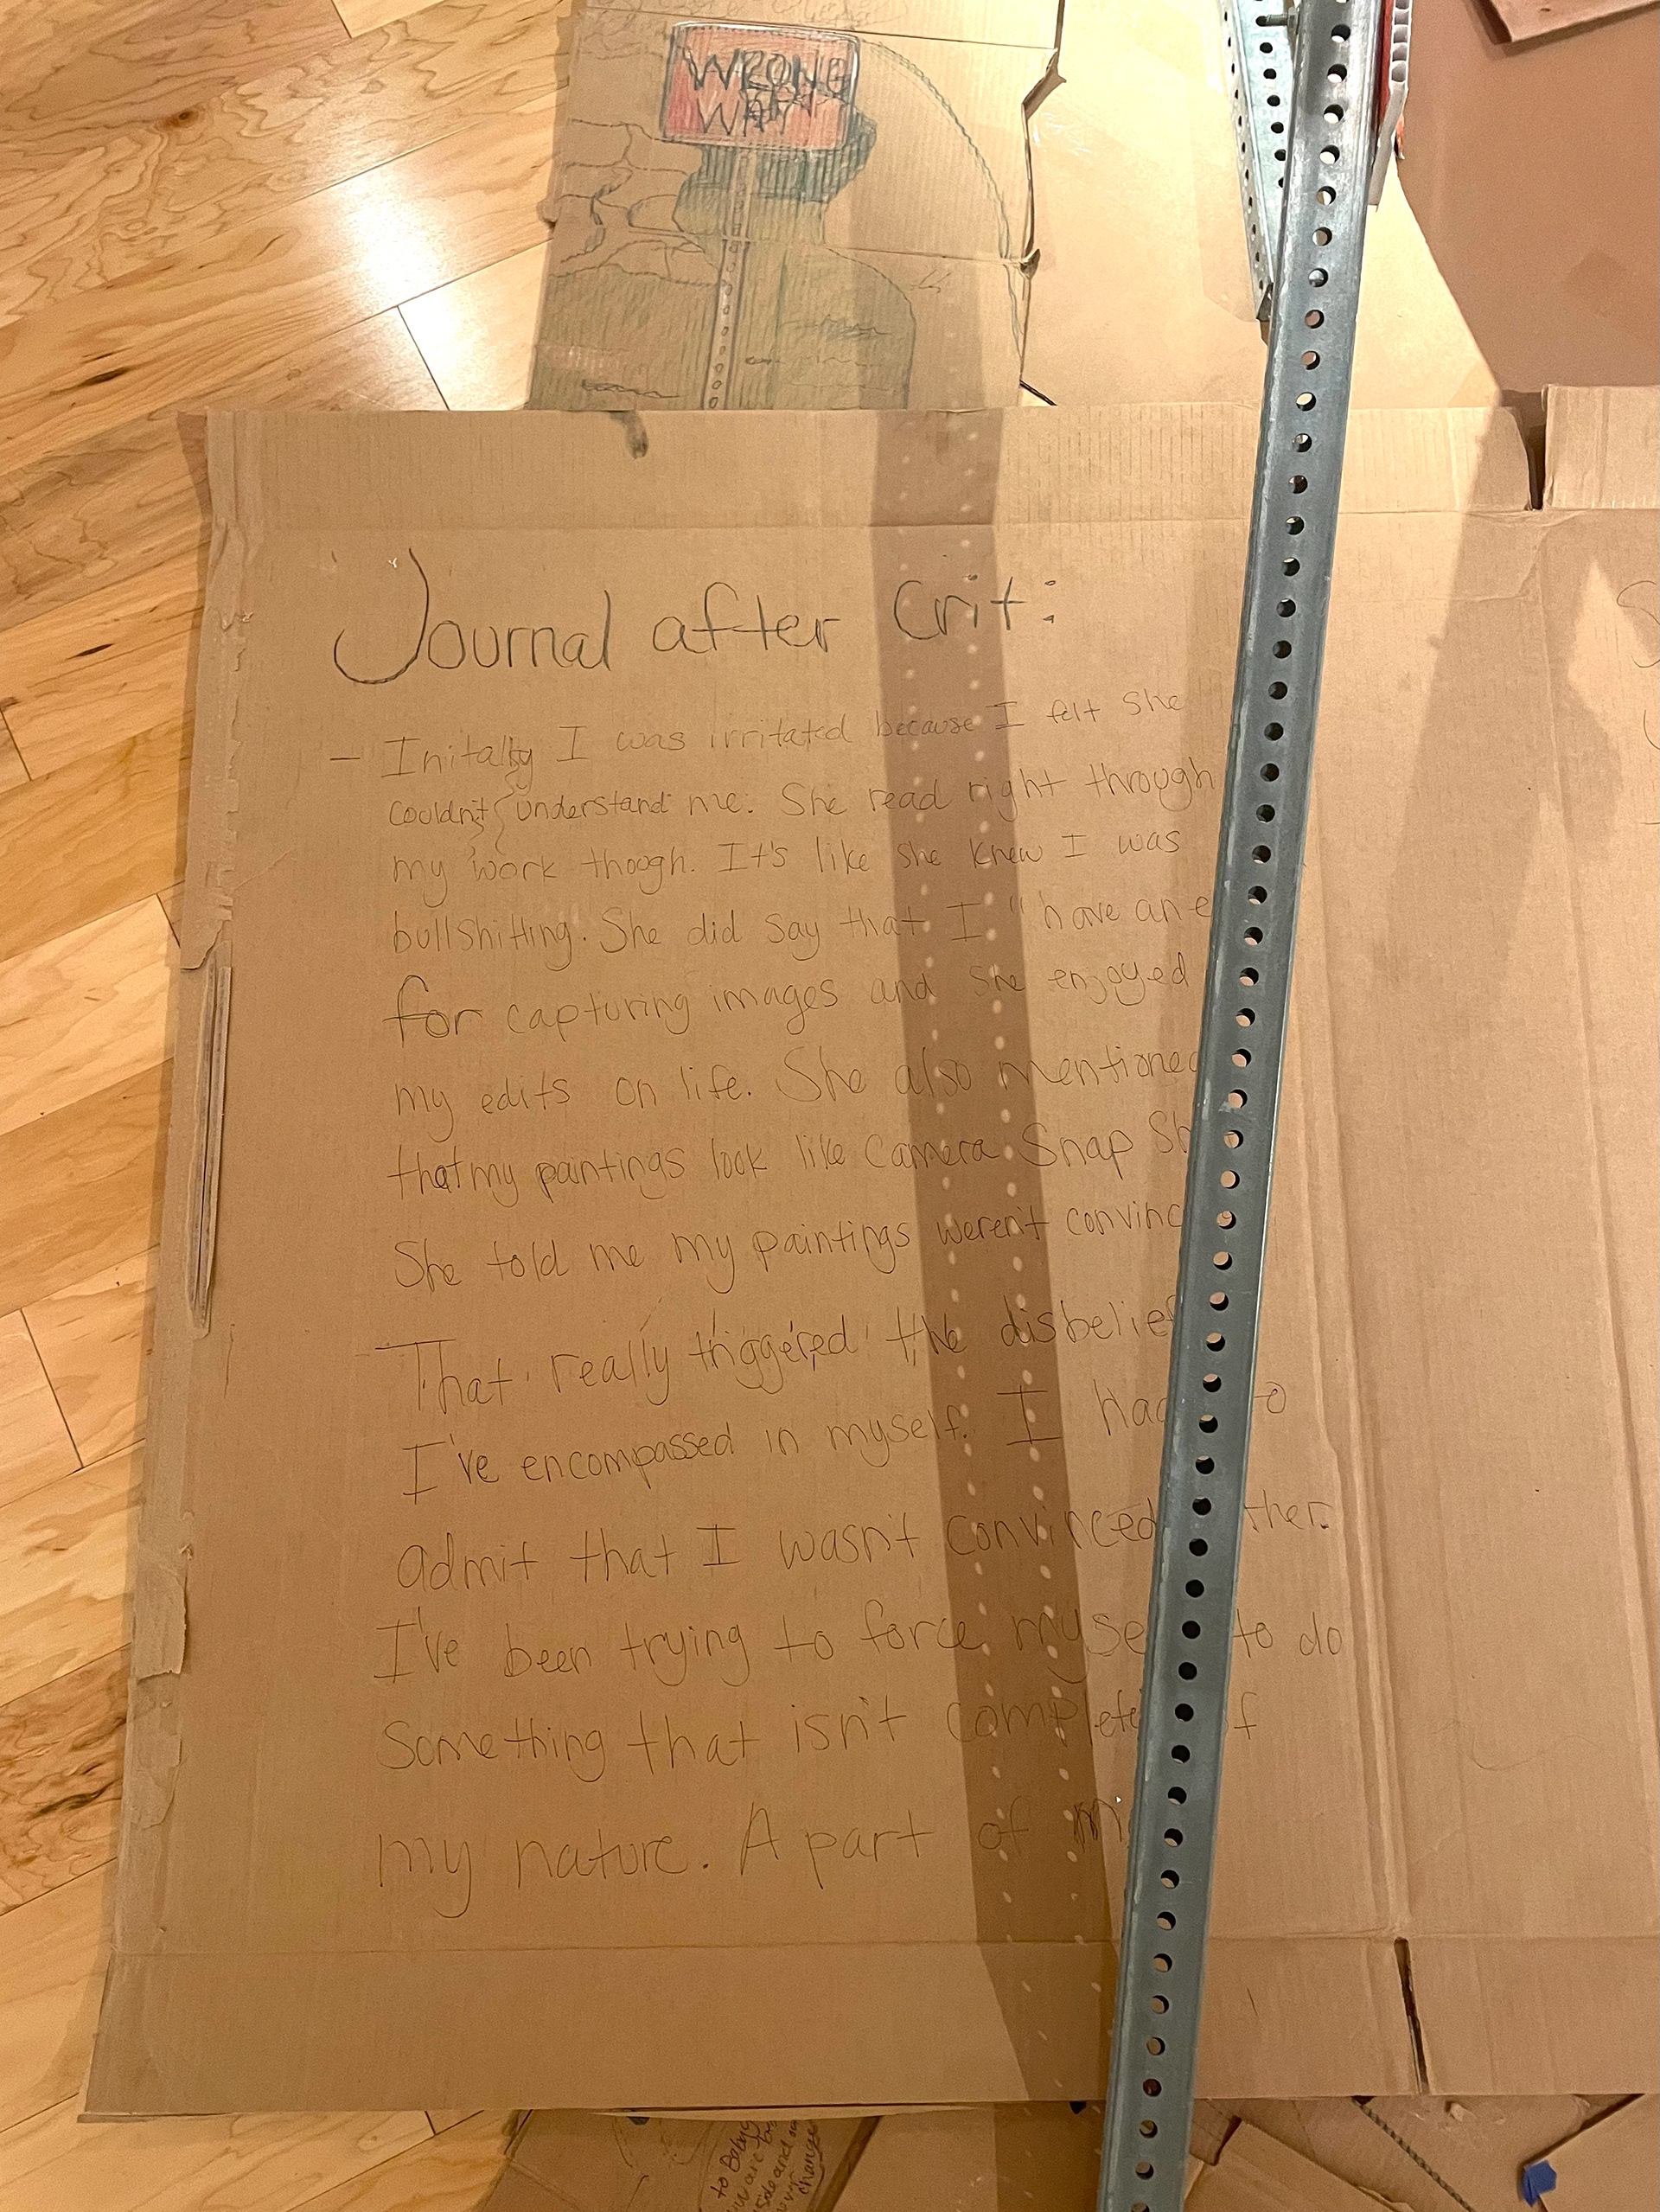 WRONG
WAY
Journal after Crit:
– Initally I was irritated because I felt she
couldn't understand me. She read right through
my work though. It's like she knew I was
bullshitting. She did say that I "have an
for capturing images and she enjoyed
my edits on life. She also mentioned
that my paintings look like Camera Snap
She told me my paintings weren't
That really triggered the disbelief
I've encompassed in myself. I
admit that I wasn't convinced
I've been trying to force to do
Something that isn't
my nature. A part of
to
are
side and
change